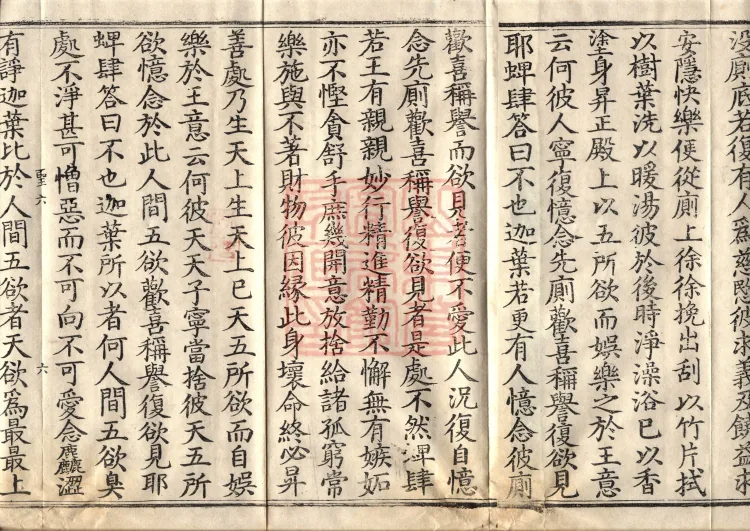 沒廁底若復有人爲慈愍彼求義及饒益求
安隱快樂便從廁上徐徐挽出刮以竹片拭
以樹葉洗以暖湯彼於後時淨澡浴已以香
塗身昇正殿上以五所欲而娛樂之於王意
云何彼人寧復憶念先廁歡喜稱譽復欲見
耶蜱肆答曰不也迦葉若更有人憶念彼廁
歡喜稱譽而欲見者便不愛此人況復自憶
念先廁歡喜稱譽復欲見者是處不然蜱肆
若王有親親妙行精進精勤不懈無有嫉妬
亦不慳貪舒手庶幾開意放捨給諸孤窮常
樂施與不著財物彼因緣此身壞命終必昇
善處乃生天上生天上已天五所欲而自娛
樂於王意云何彼天天子寧當捨彼天五所
欲憶念於此人間五欲歡喜稱譽復欲見耶
蜱肆答曰不也迦葉所以者何人間五欲臭
處不淨甚可憎惡而不可向不可愛念麤澀
聖六 六
有諍迦葉比於人間五欲者天欲爲最最上